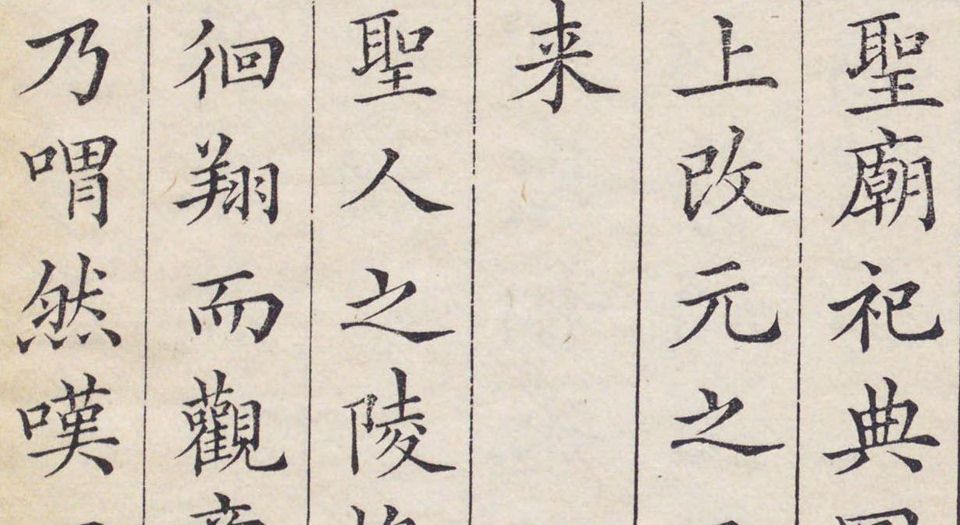 聖廟祀典
上改元之
来
聖人之陵
徊翔而觀
乃喟然嘆